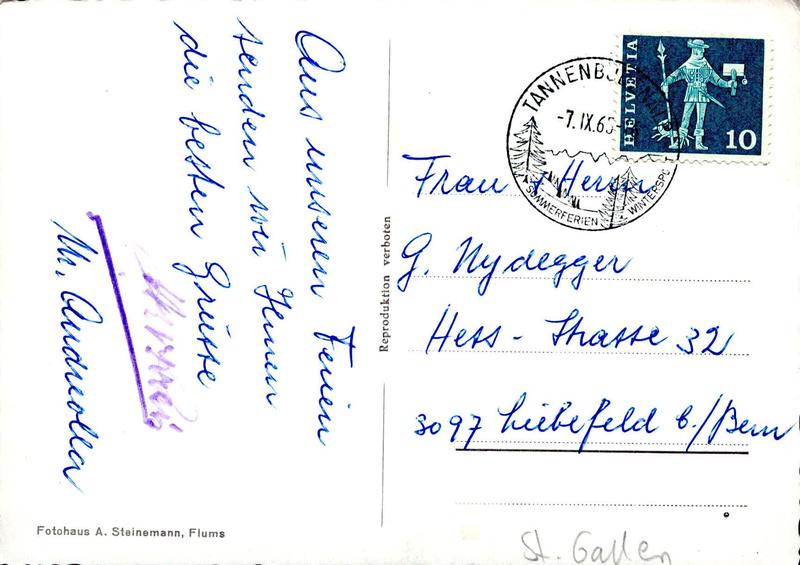 Aus unseren Ferien
senden wir Ihnen
die besten Grüsse
M. Andreolla
Fotohaus A. Steinemann, Flums
Reproduktion verboten
HELVETIA
10
TANNENB
-7.IX.65-
SOMMERFERIEN
WINTERSPO
Frau + Herrn
G. Nydegger
Hess-Strasse 32
3097 Liebefeld b./Bern
St. Gallen